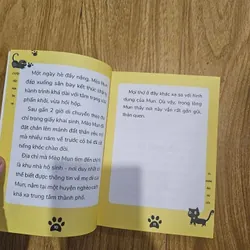 Một ngày hè đầy nắng, Mèo Mun
đáp xuống sân bay kết thúc những
hành trình khá dài với tâm trạng vừa
phấn khởi, vừa hồi hộp.
Sau gần 2 giờ di chuyển theo chu
chỉ trang giấy khai sinh, Mèo Mun đã
đặt chân lên mảnh đất thân yêu
mà nhiều năm về trước có bé đã
tiếng khóc chào đời.
Địa chỉ mà Mèo Mun tìm đến chính
là khu nhà hộ sinh - nơi duy nhất có
thể biết được thông tin về mẹ đẻ của
Mun, nằm tại một huyện nghèo cách
khá xa trung tâm thành phố.
Mọi thứ ở đây khác xa so với hình
dung của Mun. Dù vậy, trong lòng
Mun thấy nơi này vẫn rất gần gũi,
thân quen.